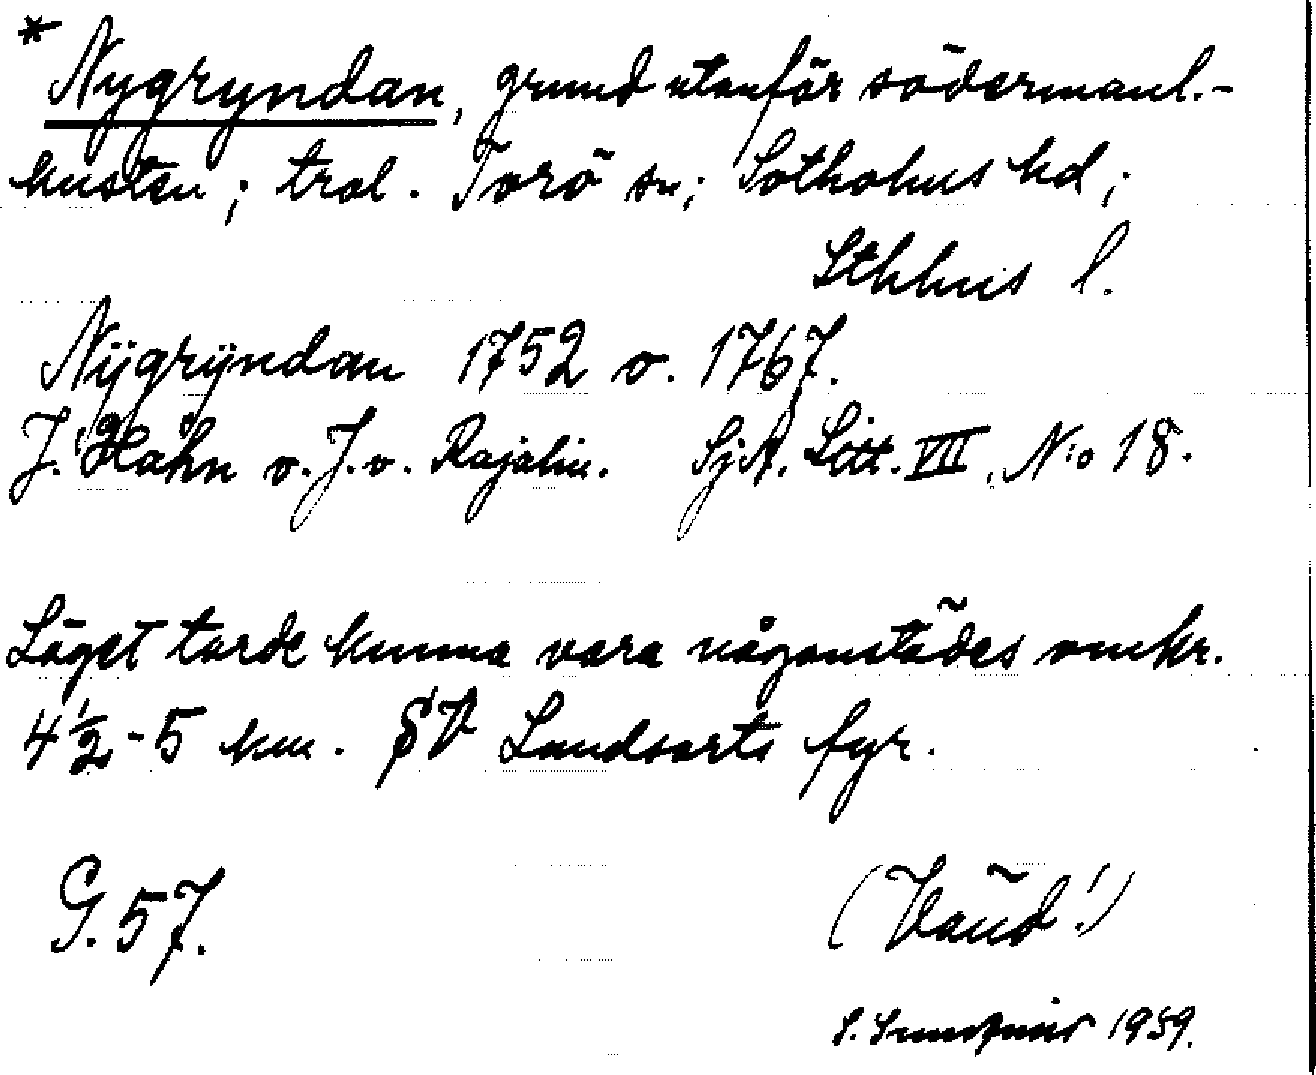 * Nygryndan, grund utanför södermanl.-
kusten; trol. Torö sn; Sotholms hd;
Sthlms l.
Nÿgrÿndan 1752 o. 1767.
J. Hahn o. J. v. Rajalin. SjA. Litt. VII, N:o 18.
Läget torde kunna vara någonstädes omkr.
4½-5 km. SV Landsorts fyr.
G. 57.
(Vänd!)
S. Sundquist 1959.